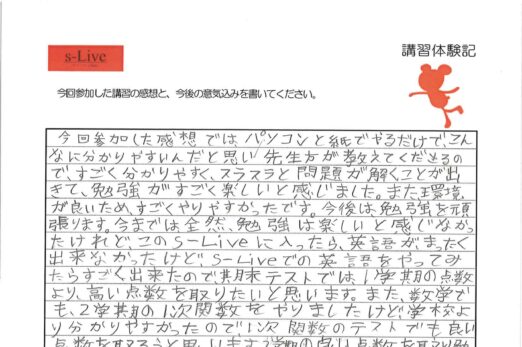 s-Live
講習体験記
今回参加した講習の感想と、今後の意気込みを書いてください。
今回参加した感想ではパソコンと紙でやるだけで、こん
なに分かりやすいんだと思い先生方が教えてくださるの
で、すごく分かりやすく、スラスラと問題が解くことが出
きて、勉強がすごく楽しいと感じました。また環境
が良いため、すごくやりやすかったです。今後は勉強を頑
張ります。今までは全然、勉強は楽しいと感じなかっ
たけれど、このs-Liveに入ったら、英語が、まったく
出来なかったけどs-Liveでの英語をやってみ
たらすごく出来たので期末テストでは、1学期の点数
より、高い点数を取りたいと思います。また、数学で
も、2学期の1次関数をやりましたけど、学校よ
り分かりやすかったので1次関数のテストでも良い
点数を取ろうと思います